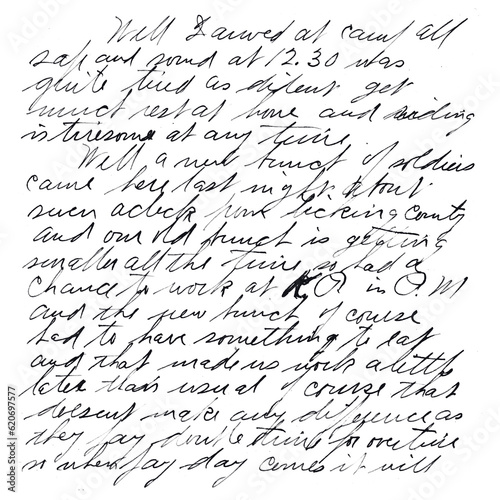 Well I arrived at camp all
safe and sound at 12.30 was
quite tired as dident get
much rest at home and riding
is tiresome at any time.
Well a new bunch of soldiers
came here last night about
seven oclock from Licking County
and our old bunch is getting
smaller all the time so had a
chance to work at K.P. in P.M
and the new bunch of course
had to have something to eat
and that made us work a little
later than usual of course that
doesent make any difference as
they pay double time for overtime
so when pay day comes it will
Adobe Stock | #620697577